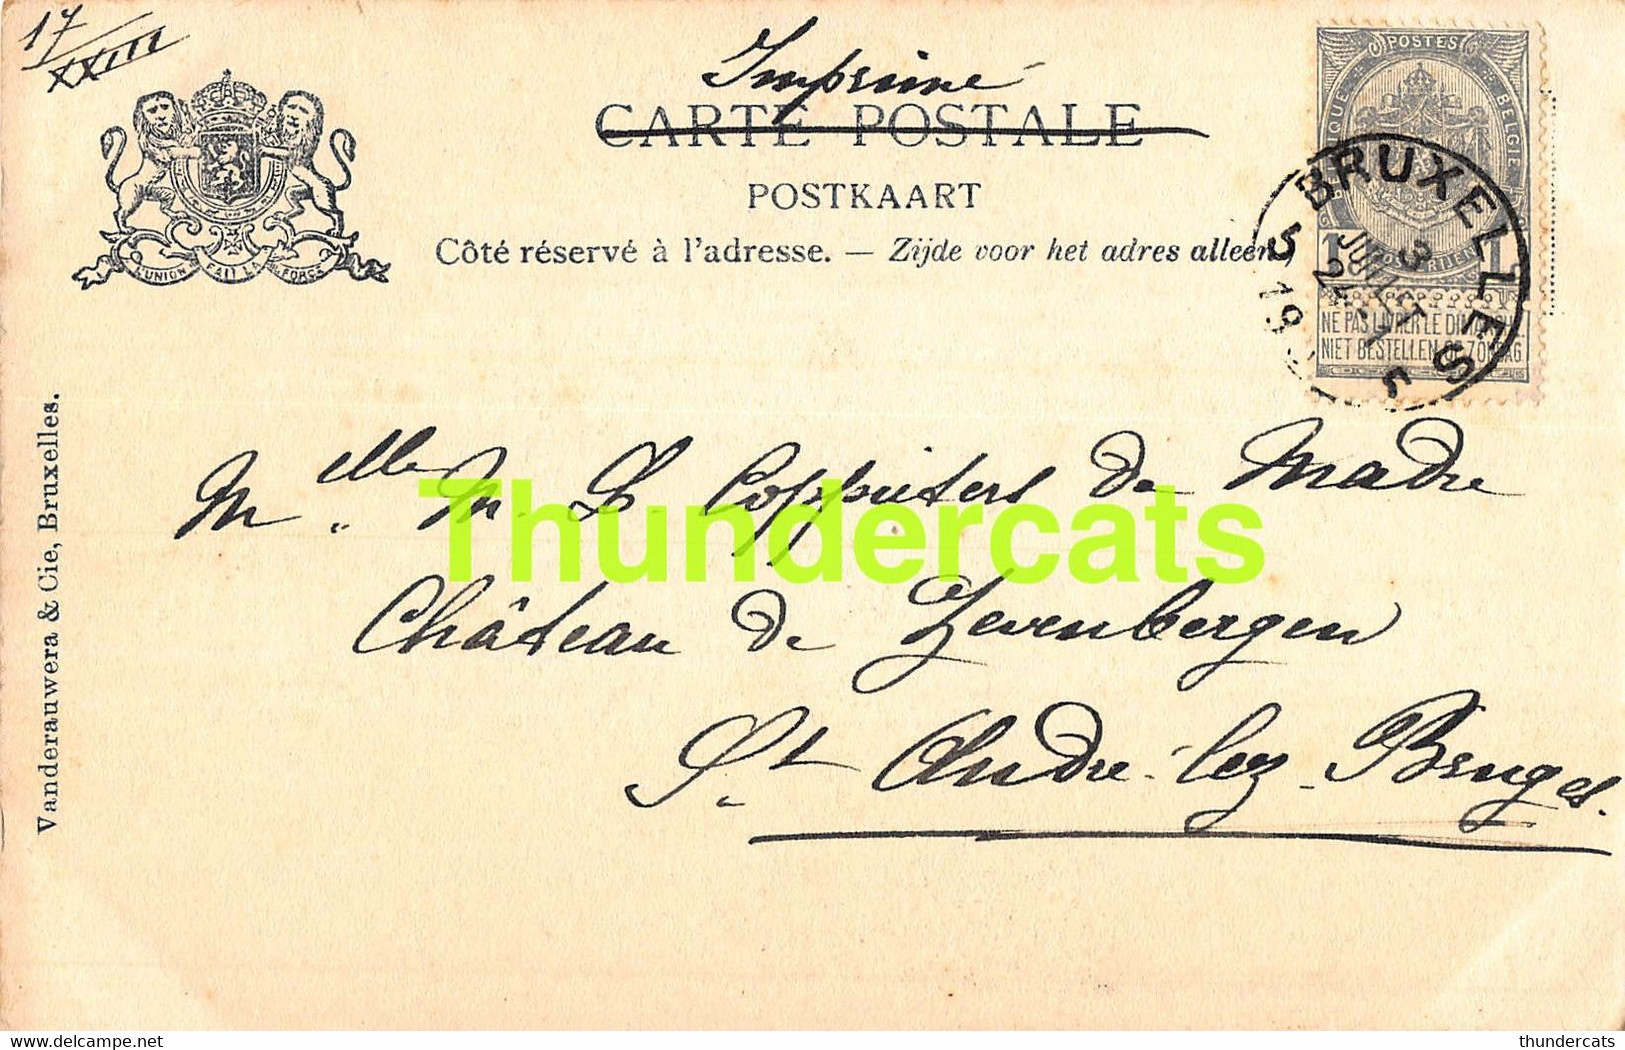 17
XXIII
Imprimé
CARTE POSTALE
POSTKAART
Côté réservé à l'adresse. — Zijde voor het adres alleen.
L'UNION FAIT LA FORCE
POSTES
BELGIQUE
BELGIE
1 1
NE PAS LIVRER LE DIMANCHE
NIET BESTELLEN OP ZONDAG
BRUXELLES 5
3 JUILLET
19
Mlle M. L. Coppieters de Madre
Château de Zevenbergen
St. André-lez-Bruges.
Vanderauwera & Cie, Bruxelles.
Thundercats
delcampe.net
thundercats